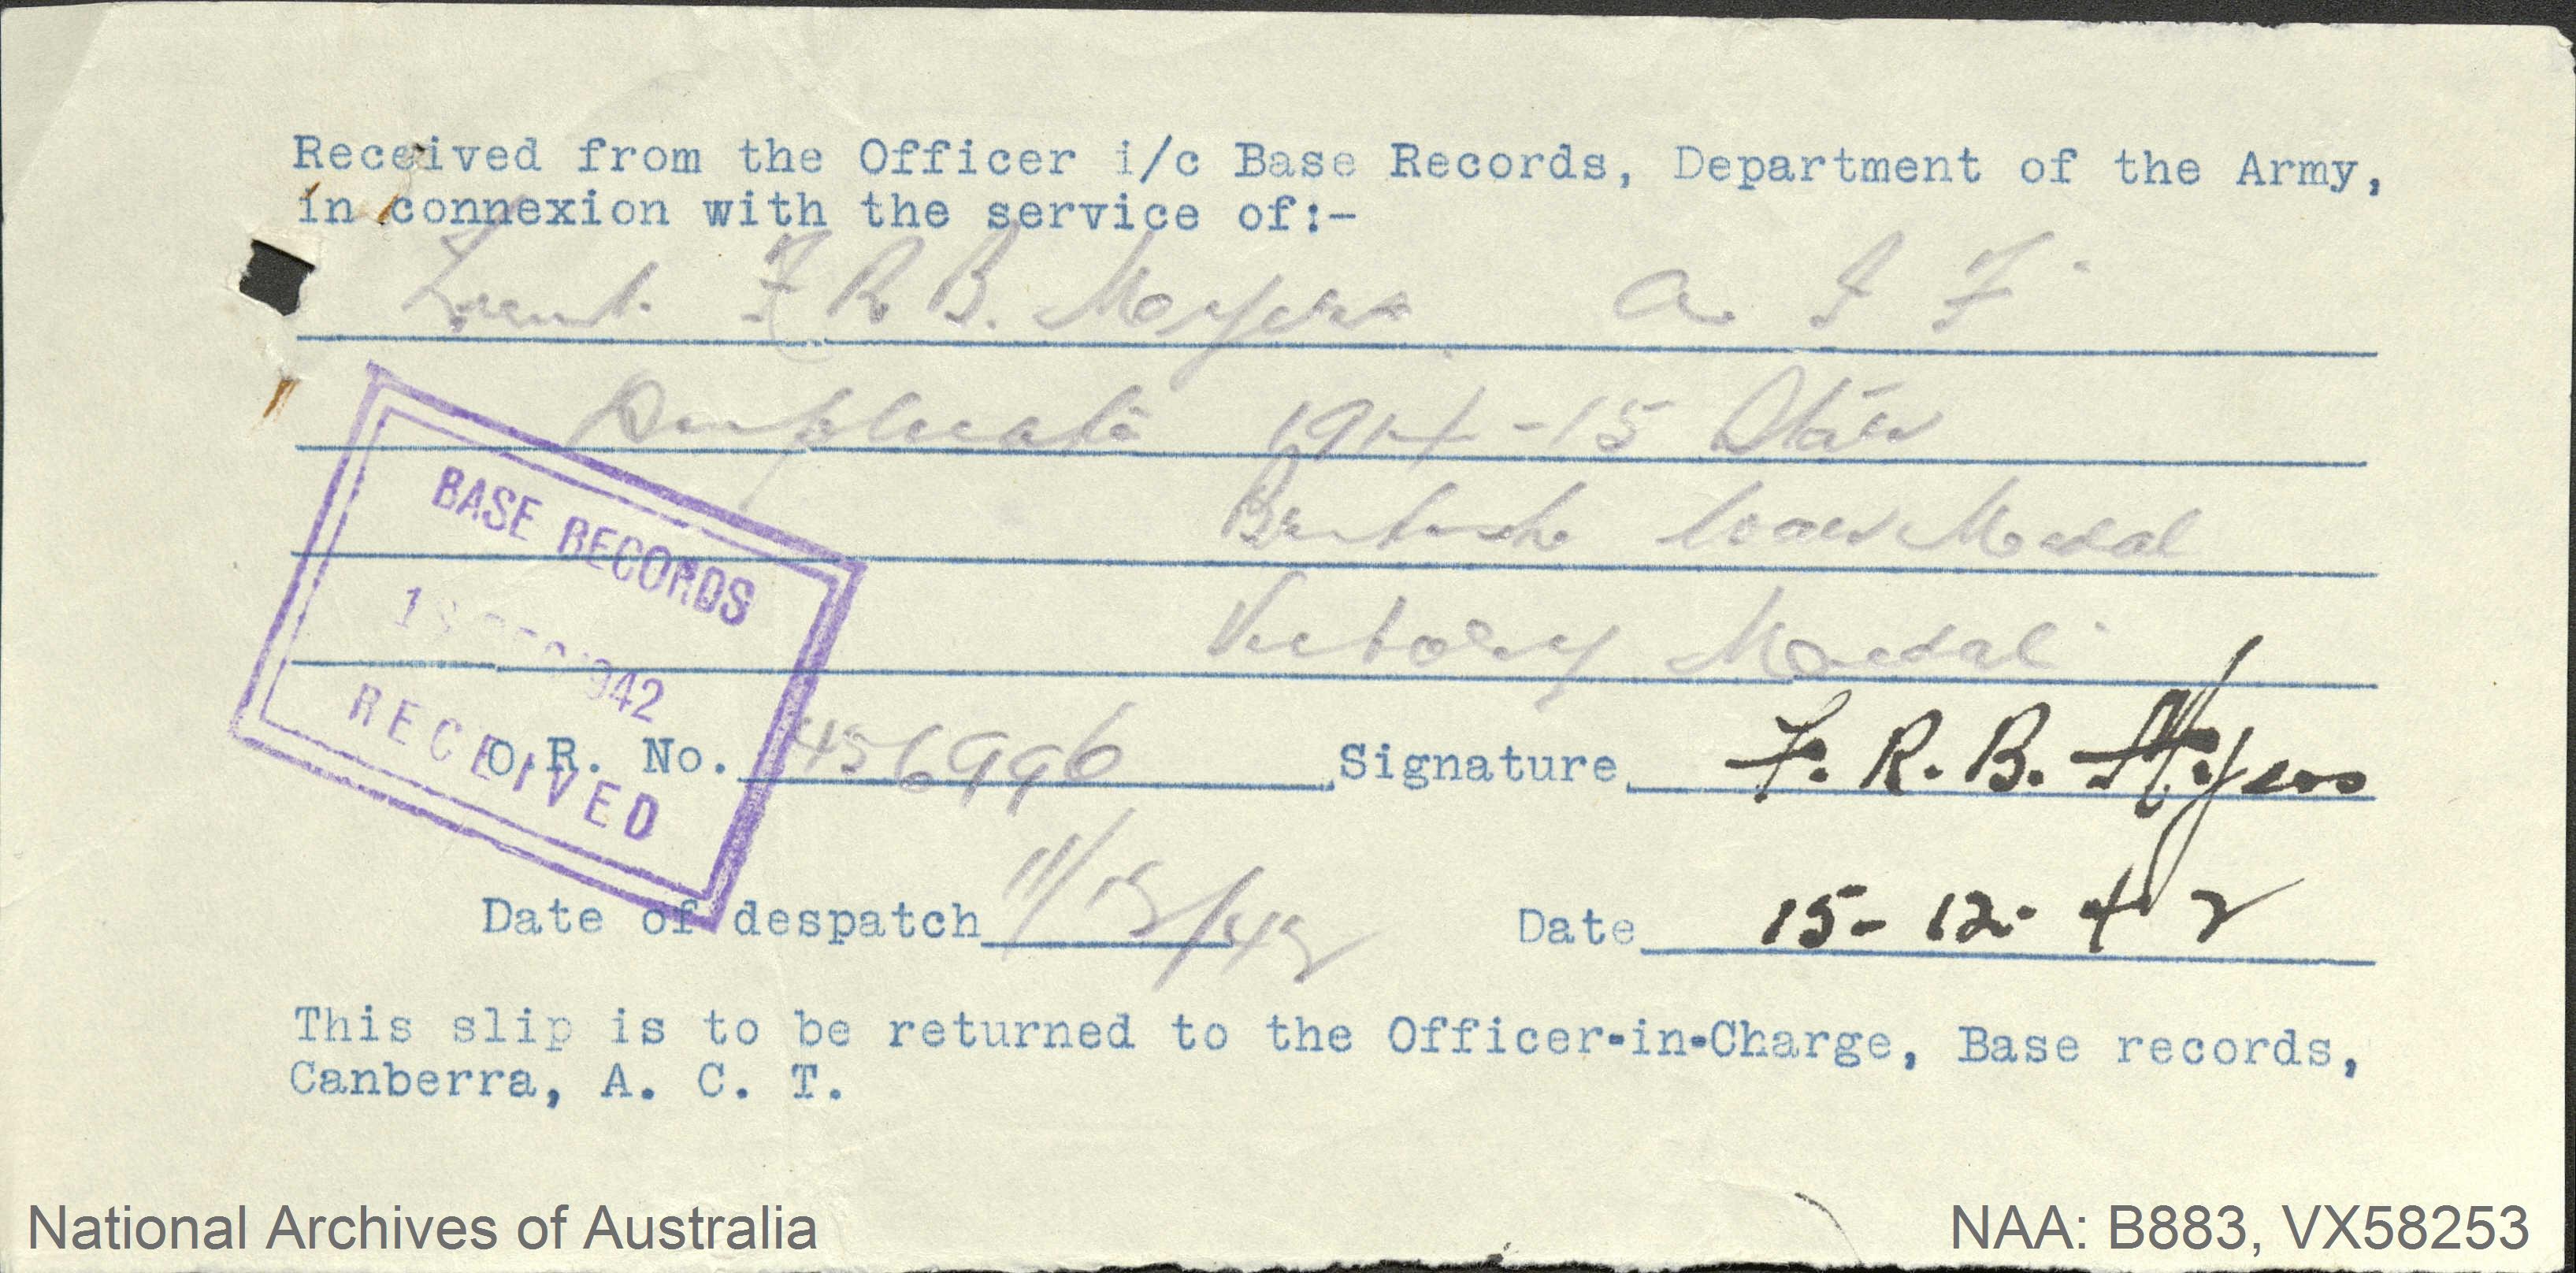 Received from the Officer i/c Base Records, Department of the Army,
in connexion with the service of:-
Lieut. F R B. Meyers A I F
Duplicate 1914-15 Star
British War Medal
Victory Medal
BASE RECORDS
1942
RECEIVED
O.R. No. 456996 Signature F. R. B. Meyers
Date of despatch 11/12/42 Date 15-12-42
This slip is to be returned to the Officer-in-Charge, Base records,
Canberra, A. C. T.
National Archives of Australia NAA: B883, VX58253